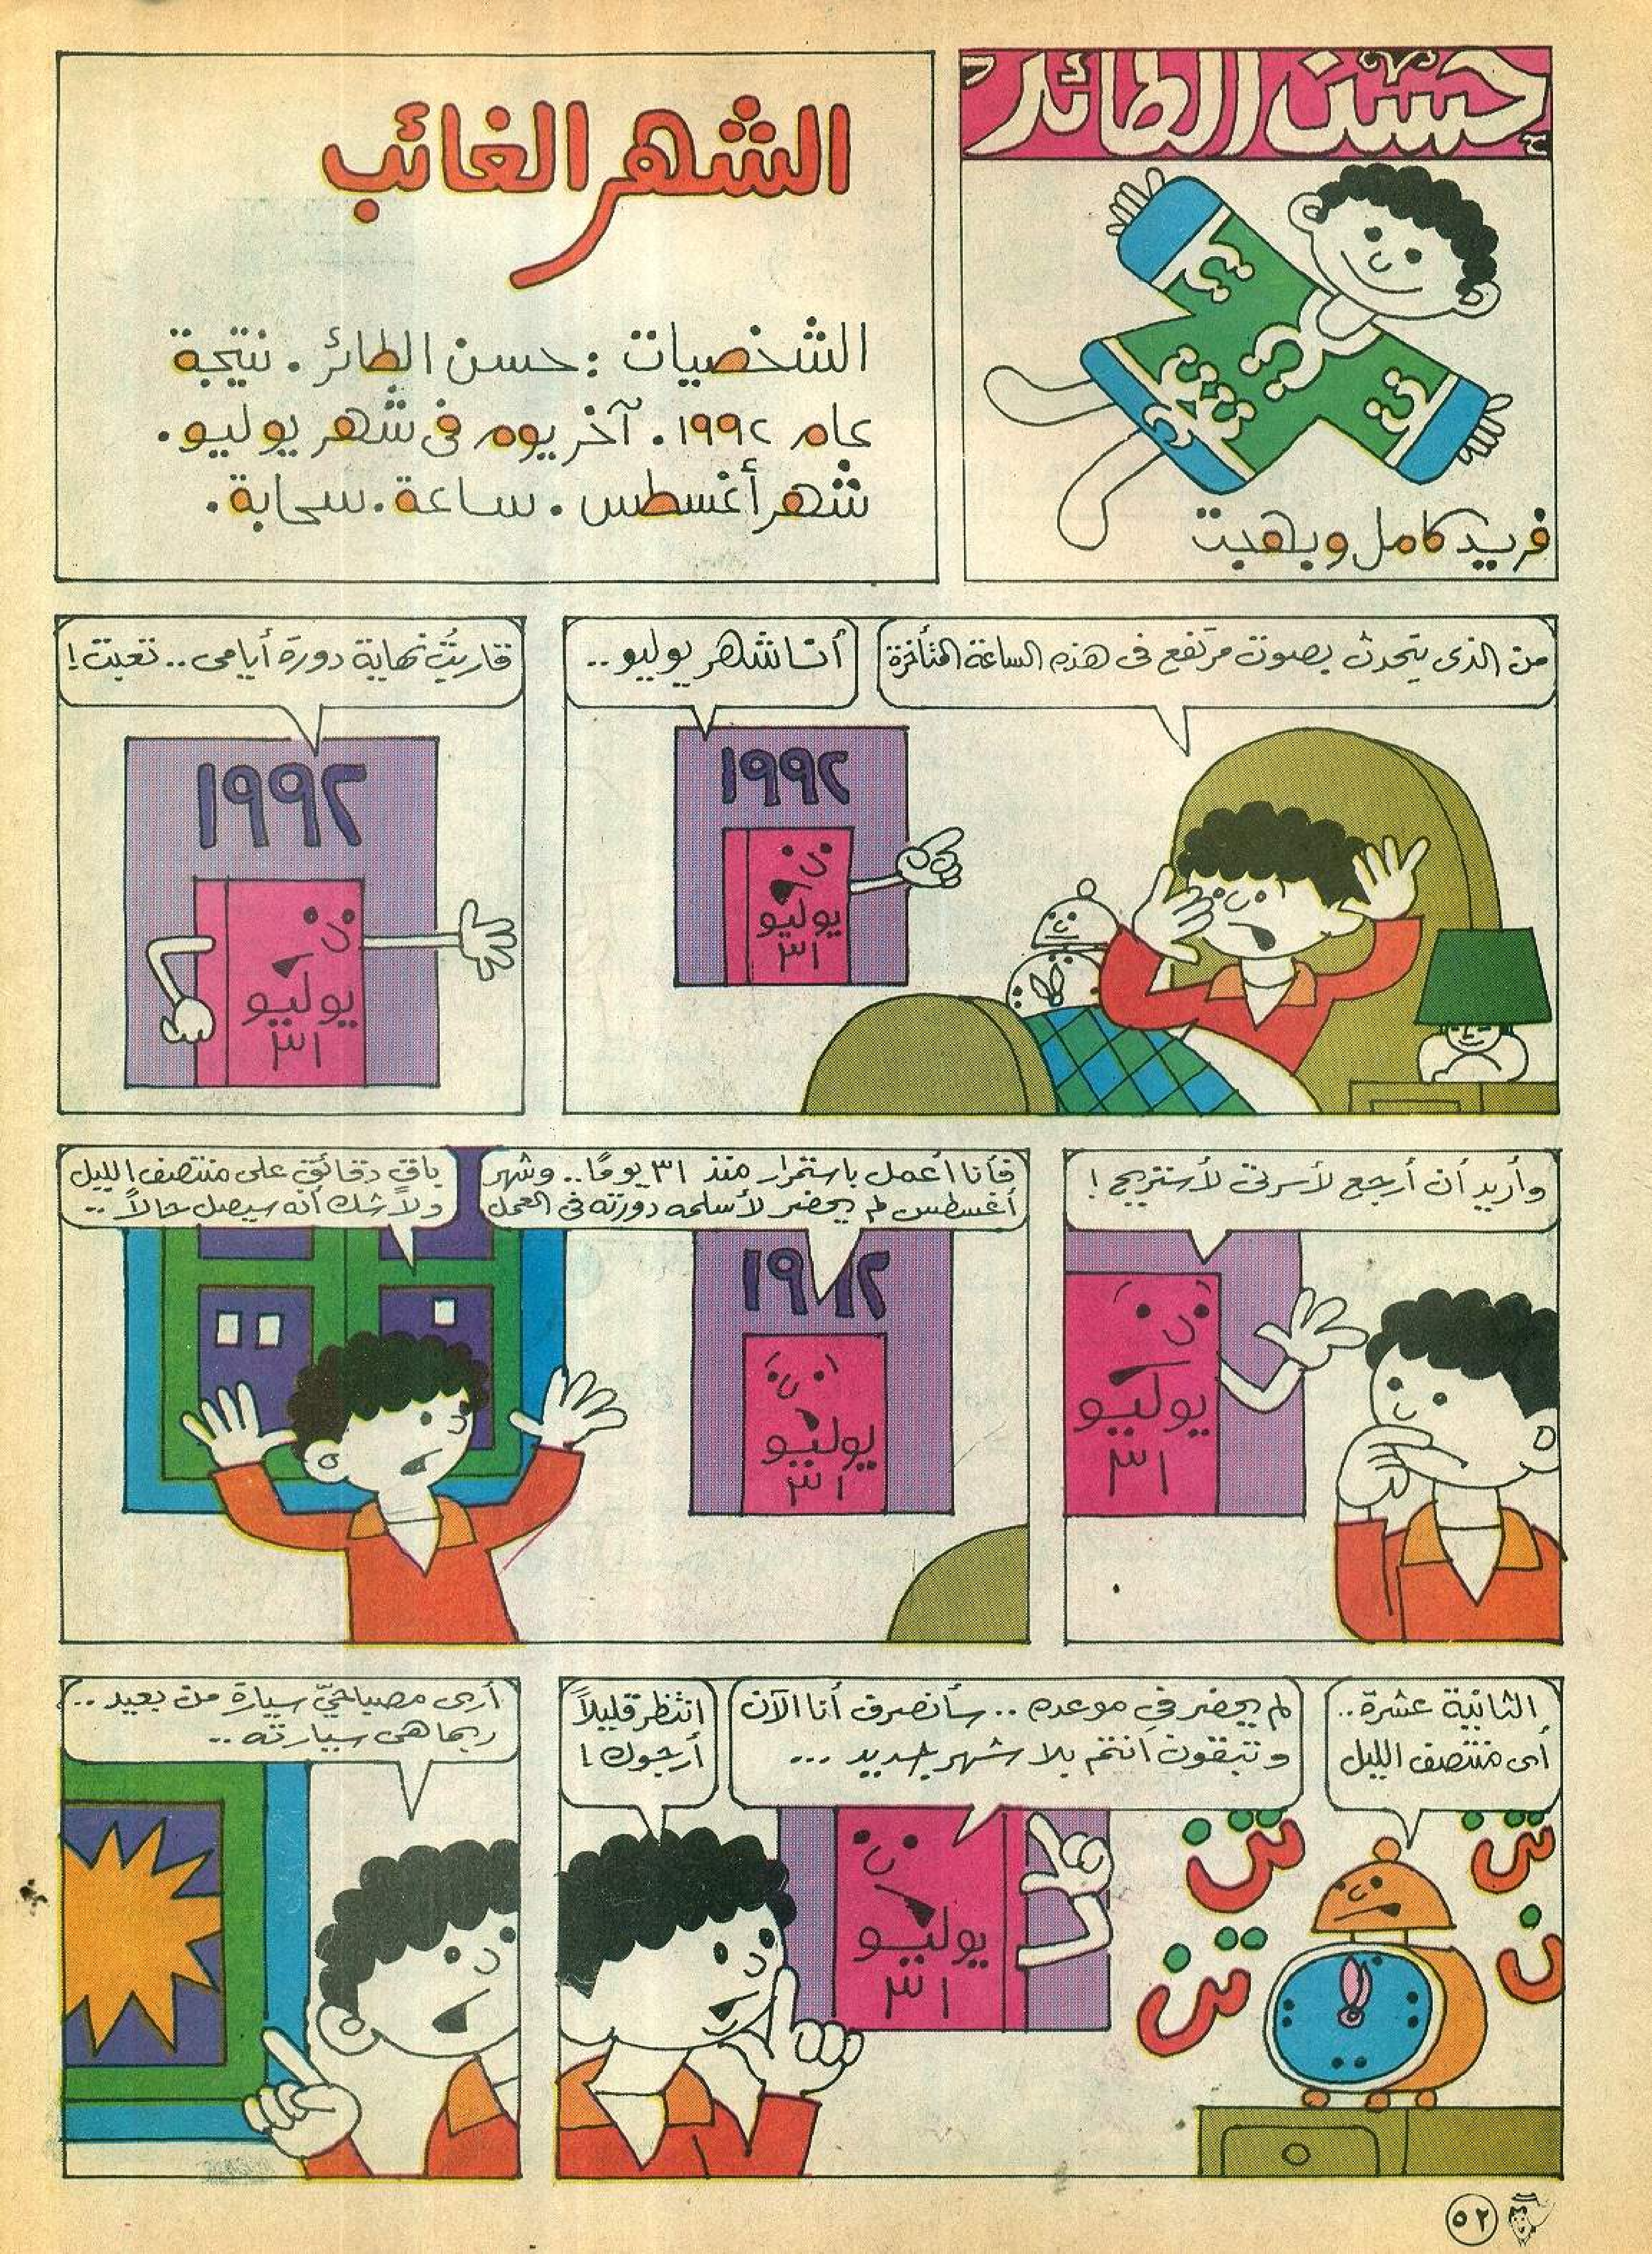 حسن الطائر
فريد كامل وبهجت
الشهر الغائب
الشخصيات : حسن الطائر . نتيجة
عام ١٩٩٢ . آخر يوم فى شهر يوليو .
شهر أغسطس . ساعة . سحابة .
من الذى يتحدث بصوت مرتفع فى هذه الساعة المتأخرة
أنا شهر يوليو ..
١٩٩٢
يوليو
٣١
قاربتُ نهاية دورة أيامى .. تعبت !
١٩٩٢
يوليو
٣١
وأريد أن أرجع لأسرتى لأستريح !
يوليو
٣١
فأنا أعمل باستمرار منذ ٣١ يومًا .. وشهر
أغسطس لم يحضر لأسلمه دورته فى العمل
١٩٩٢
يوليو
٣١
باقٍ دقائق على منتصف الليل
ولا شك أنه سيصل حالاً ..
الثانية عشرة ..
أى منتصف الليل
تن
تن
تن
ن
لم يحضر فى موعده .. سأنصرف أنا الآن
وتبقون أنتم بلا شهر جديد ...
يوليو
٣١
انتظر قليلاً
أرجوك !
أرى مصباحىّ سيارة من بعيد ..
ربما هى سيارته ..
٥٢